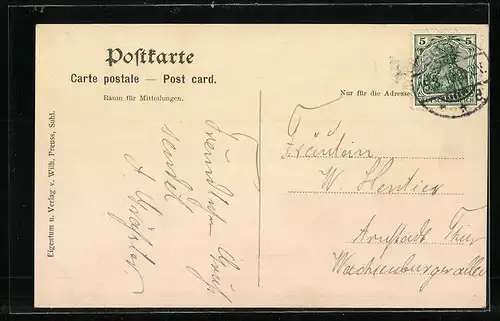 Postkarte
Carte postale — Post card.
Raum für Mitteilungen.
Nur für die Adresse.
Eigentum u. Verlag v. Wilh. Preuss, Suhl.
5 5
Freundlichen Gruß
sendet
A.
Fräulein
W.
Arnstadt Thür
Wachsenburgerallee